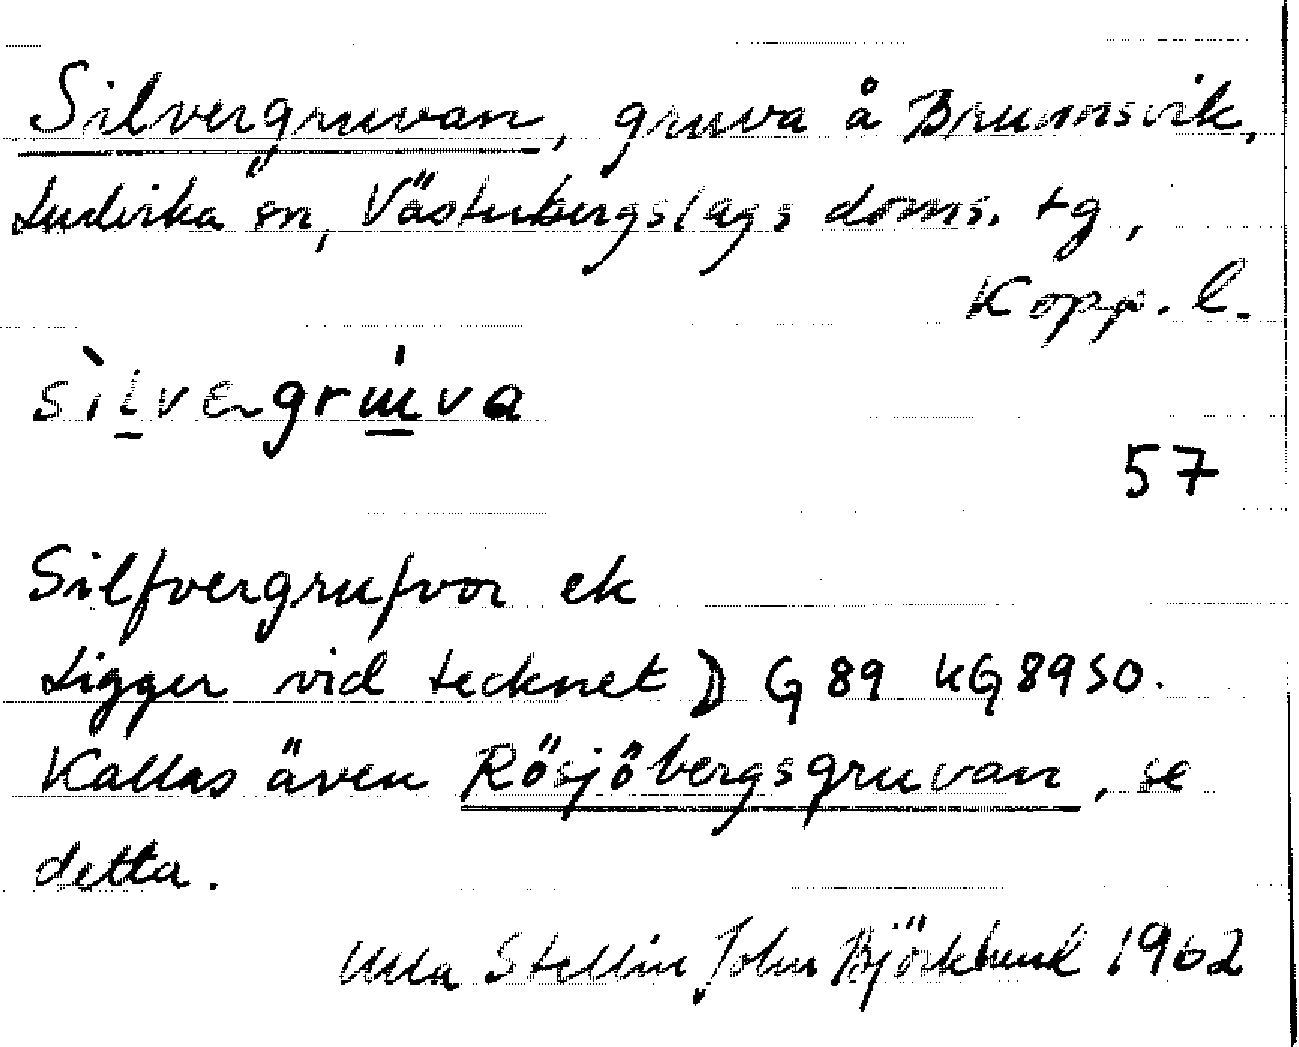 Silvergruvan, gruva å Brunnsvik,
Ludvika sn, Västerbergslags doms. tg,
Kopp. l.
sìlvergrúva
57
Silfvergrufvor ek
Ligger vid tecknet D G 89 kG 89 SO.
Kallas även Rösjöbergsgruvan, se
detta.
Ulla Stellin John Björkbend 1962